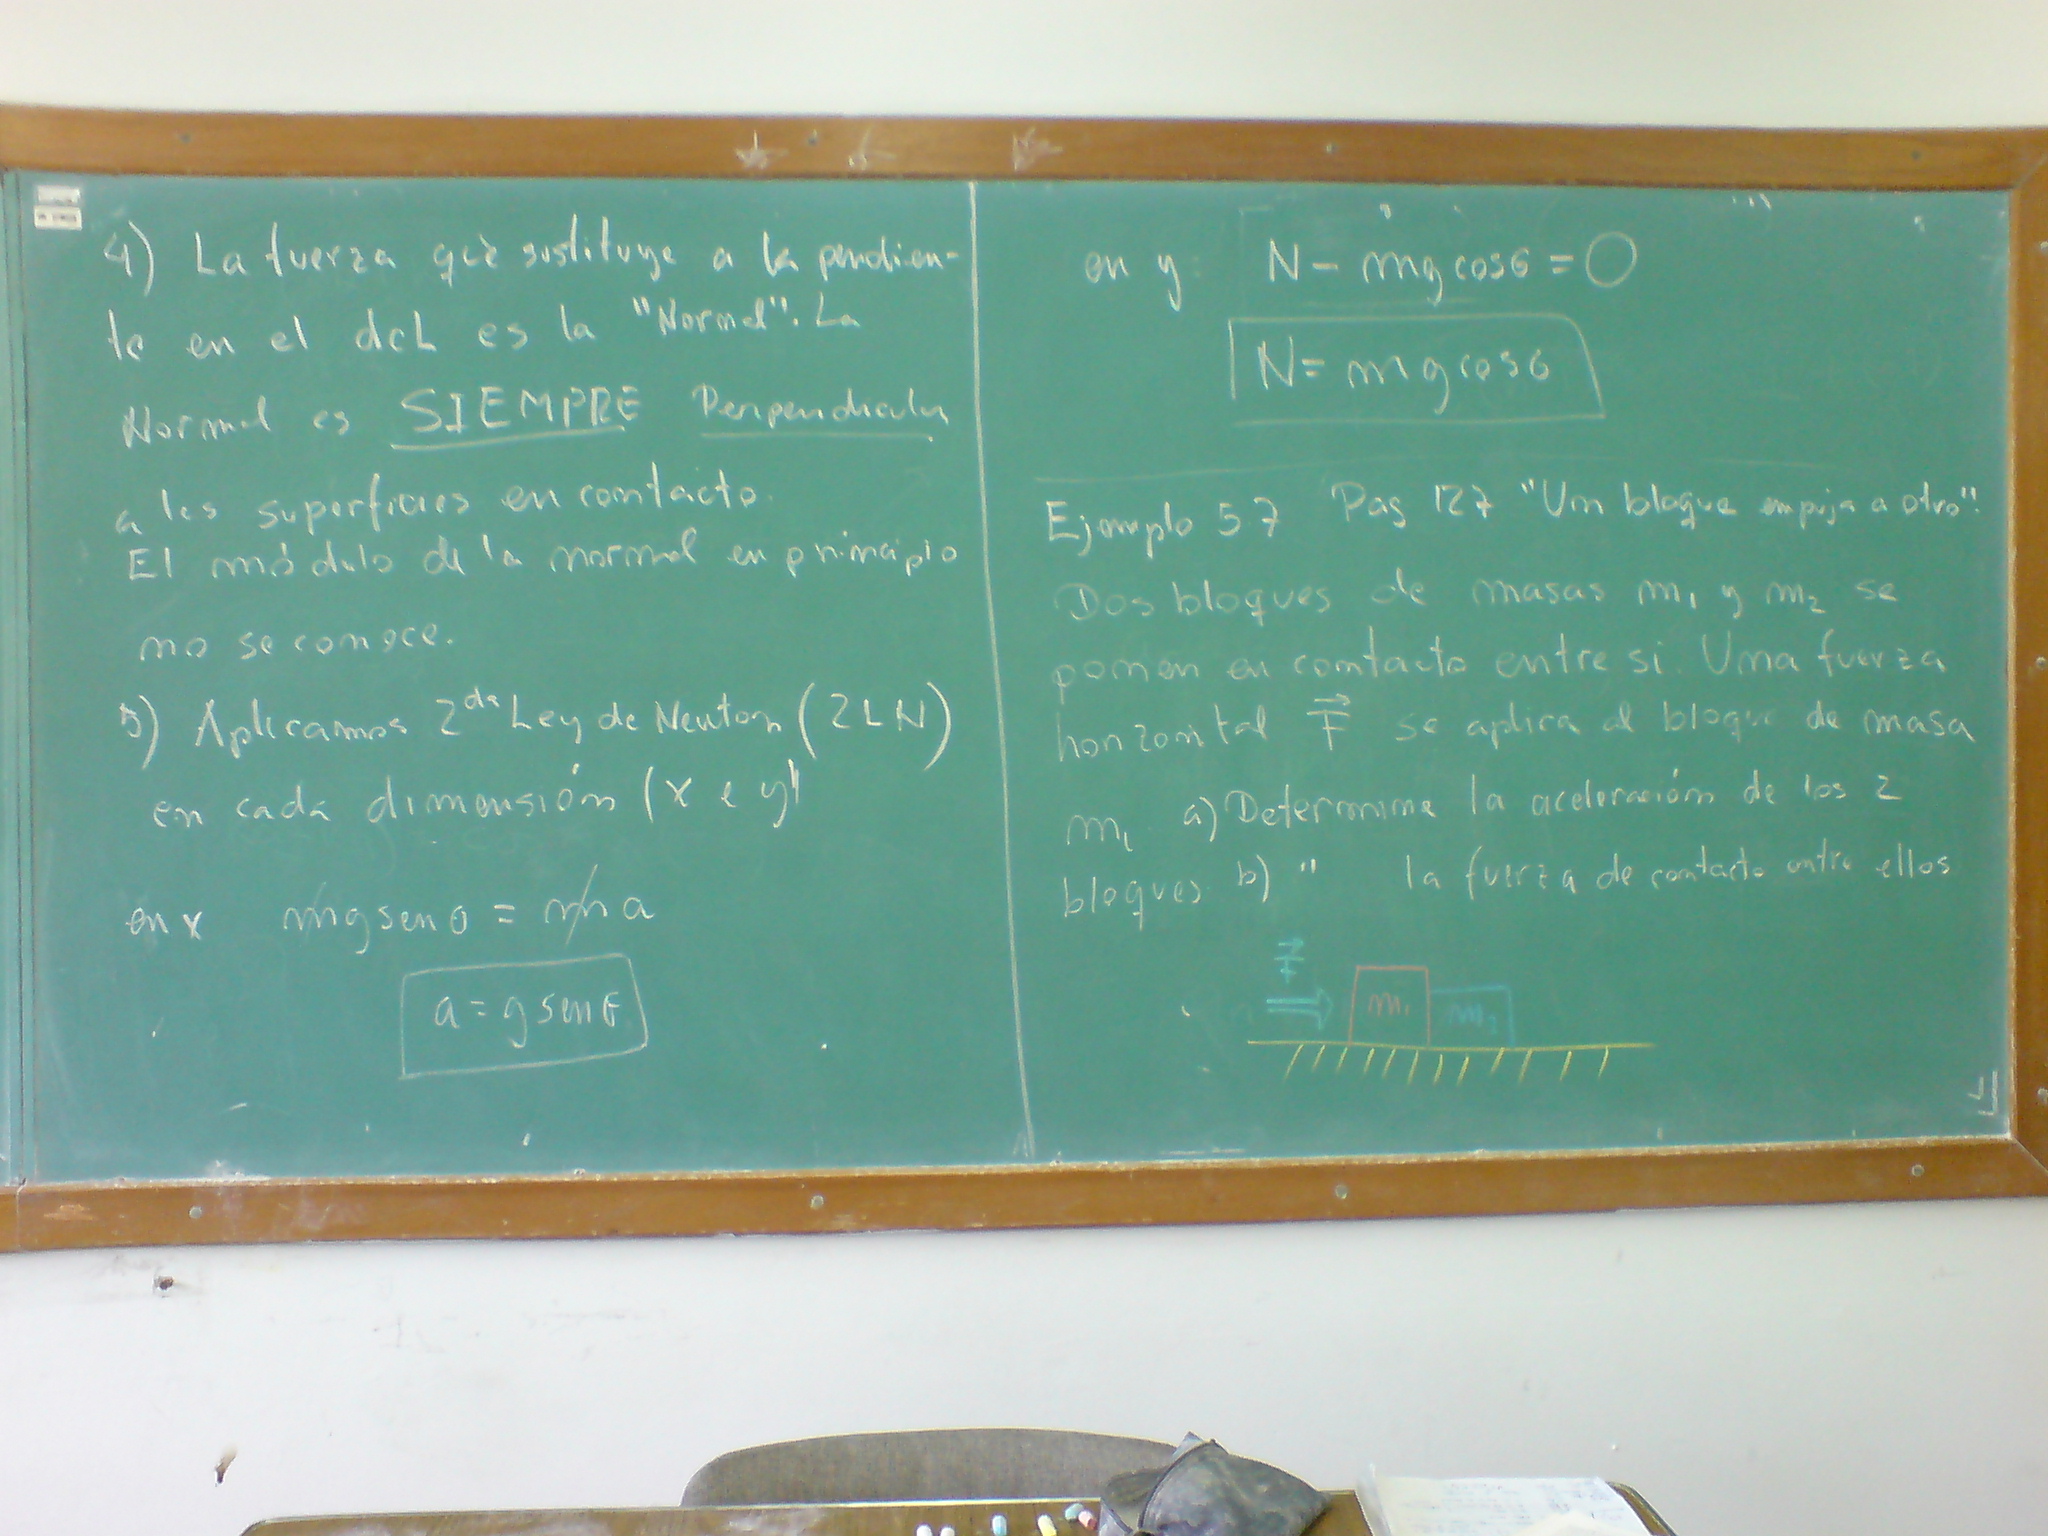 4) La fuerza que sustituye a la pendien-
te en el dcL es la "Normal". La
Normal es SIEMPRE Perpendicular
a las superficies en contacto.
El módulo de la normal en principio
no se conoce.
5) Aplicamos 2da Ley de Newton (2LN)
en cada dimensión (x e y)
en x mg sen θ = m a
a = g sen θ
en y: N - mg cos θ = 0
N = mg cos θ
Ejemplo 5.7 Pag 127 "Un bloque empuja a otro".
Dos bloques de masas m₁ y m₂ se
ponen en contacto entre si. Una fuerza
horizontal F⃗ se aplica al bloque de masa
m₁ a) Determine la aceleración de los 2
bloques. b) " la fuerza de contacto entre ellos
F⃗
m₁ m₂